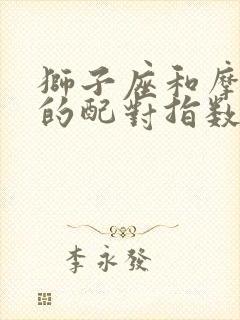 獅子座和摩
的配對指数
李永發